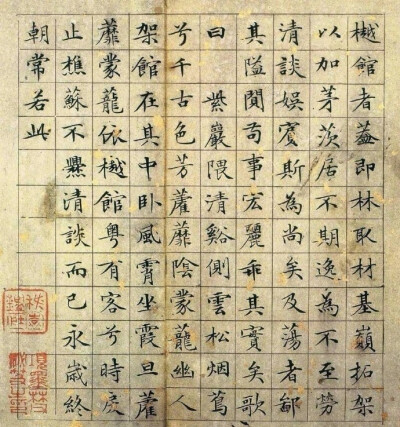 樾館者蓋即林取材基巔拓架
以加茅茨居不期逸為不至勞
清談娛賓斯為尚矣及蕩者鄙
其隘苟事宏麗乖其實矣歌
曰紫巖隈清谿側雲松烟蔦
兮千古色芳藿蘼陰蒙龍幽人
架館在其中臥風霄坐霞旦藿
蘼蒙龍依樾館粵有客兮時戾
止樵蘇不爨清談而已永歲終
朝常若此